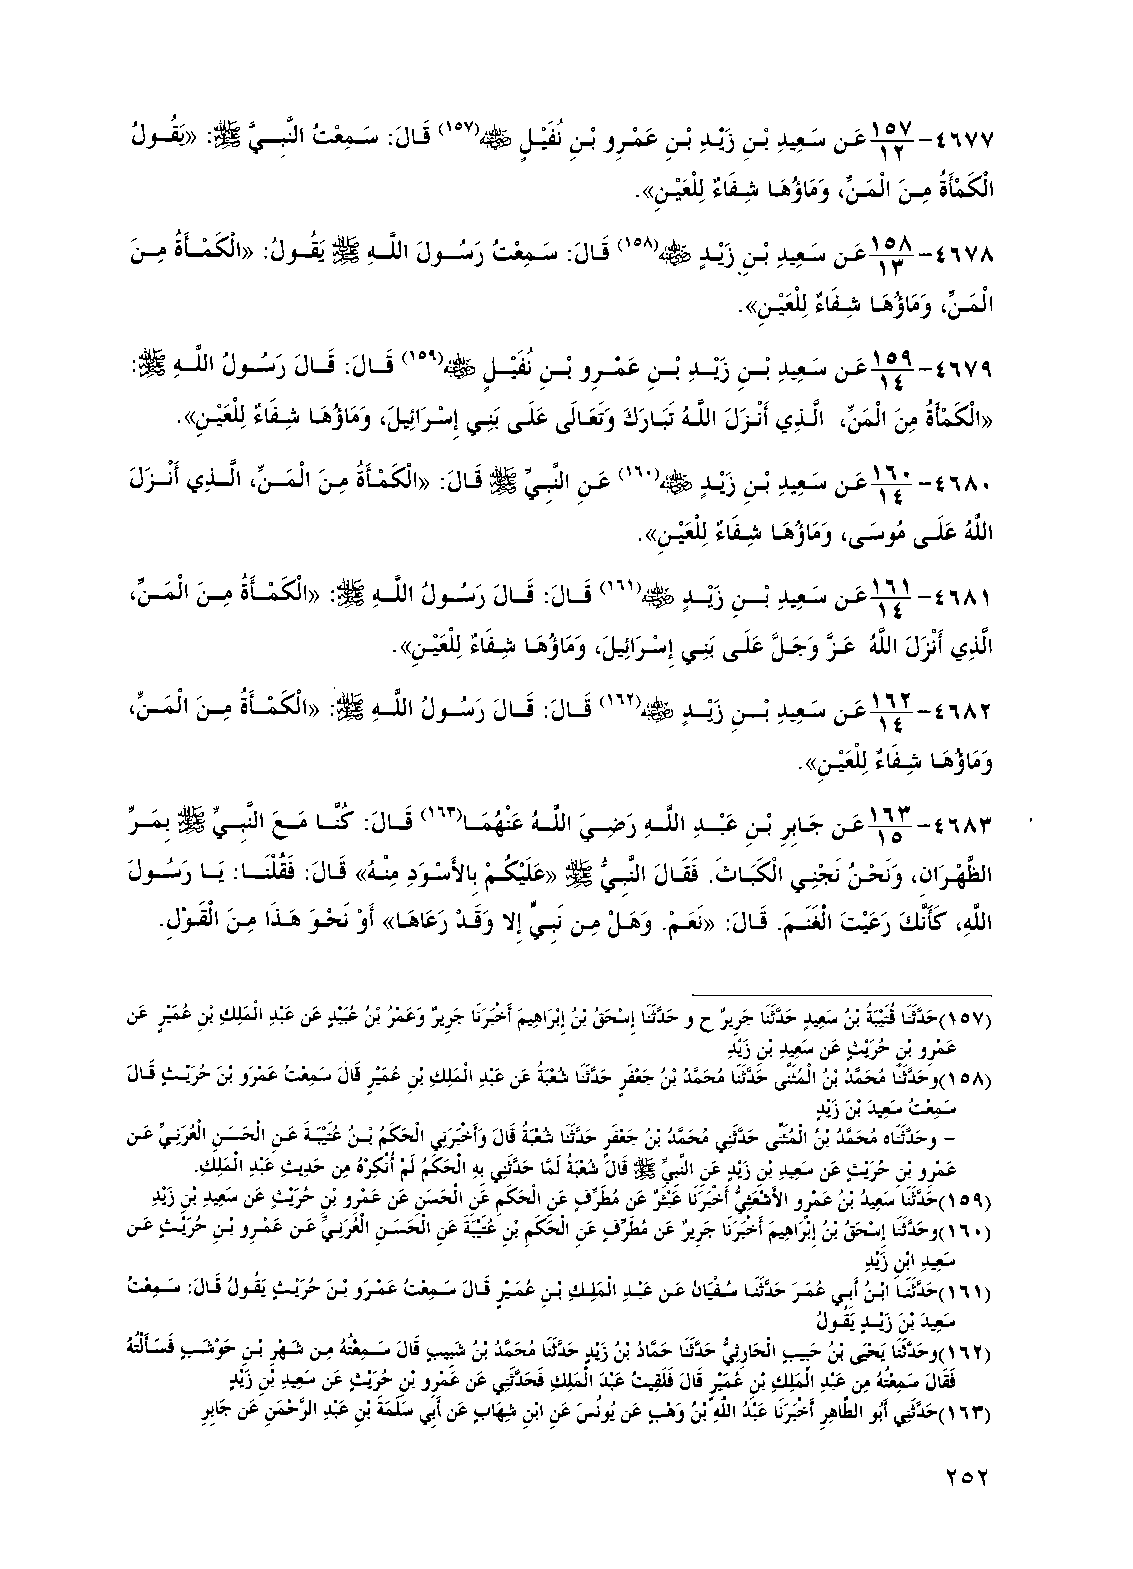 ٤٦٧٧- ١٥٧/١٢ عَن سَعِيدِ بْنِ زَيْدِ بْنِ عَمْرِو بْنِ نُفَيْلٍ ﷺ(١٥٧) قَالَ: سَمِعْتُ النَّبِيَّ ﷺ: «يَقُولُ
الْكَمْأَةُ مِنَ الْمَنِّ، وَمَاؤُهَا شِفَاءٌ لِلْعَيْنِ».
٤٦٧٨- ١٥٨/١٣ عَن سَعِيدِ بْنِ زَيْدٍ ﷺ(١٥٨) قَالَ: سَمِعْتُ رَسُولَ اللَّهِ ﷺ يَقُولُ: «الْكَمْأَةُ مِنَ
الْمَنِّ، وَمَاؤُهَا شِفَاءٌ لِلْعَيْنِ».
٤٦٧٩- ١٥٩/١٤ عَن سَعِيدِ بْنِ زَيْدِ بْنِ عَمْرِو بْنِ نُفَيْلٍ ﷺ(١٥٩) قَالَ: قَالَ رَسُولُ اللَّهِ ﷺ:
«الْكَمْأَةُ مِنَ الْمَنِّ، الَّذِي أَنْزَلَ اللَّهُ تَبَارَكَ وَتَعَالَى عَلَى بَنِي إِسْرَائِيلَ، وَمَاؤُهَا شِفَاءٌ لِلْعَيْنِ».
٤٦٨٠- ١٦٠/١٤ عَن سَعِيدِ بْنِ زَيْدٍ ﷺ(١٦٠) عَنِ النَّبِيِّ ﷺ قَالَ: «الْكَمْأَةُ مِنَ الْمَنِّ، الَّذِي أَنْزَلَ
اللَّهُ عَلَى مُوسَى، وَمَاؤُهَا شِفَاءٌ لِلْعَيْنِ».
٤٦٨١- ١٦١/١٤ عَن سَعِيدِ بْنِ زَيْدٍ ﷺ(١٦١) قَالَ: قَالَ رَسُولُ اللَّهِ ﷺ: «الْكَمْأَةُ مِنَ الْمَنِّ،
الَّذِي أَنْزَلَ اللَّهُ عَزَّ وَجَلَّ عَلَى بَنِي إِسْرَائِيلَ، وَمَاؤُهَا شِفَاءٌ لِلْعَيْنِ».
٤٦٨٢- ١٦٢/١٤ عَن سَعِيدِ بْنِ زَيْدٍ ﷺ(١٦٢) قَالَ: قَالَ رَسُولُ اللَّهِ ﷺ: «الْكَمْأَةُ مِنَ الْمَنِّ،
وَمَاؤُهَا شِفَاءٌ لِلْعَيْنِ».
٤٦٨٣- ١٦٣/١٥ عَن جَابِرِ بْنِ عَبْدِ اللَّهِ رَضِيَ اللَّهُ عَنْهُمَا(١٦٣) قَالَ: كُنَّا مَعَ النَّبِيِّ ﷺ بِمَرِّ
الظَّهْرَانِ، وَنَحْنُ نَجْنِي الْكَبَاثَ. فَقَالَ النَّبِيُّ ﷺ «عَلَيْكُمْ بِالأَسْوَدِ مِنْهُ» قَالَ: فَقُلْنَا: يَا رَسُولَ
اللَّهِ، كَأَنَّكَ رَعَيْتَ الْغَنَمَ. قَالَ: «نَعَمْ. وَهَلْ مِن نَبِيٍّ إِلا وَقَدْ رَعَاهَا» أَوْ نَحْوَ هَذَا مِنَ الْقَوْلِ.
(١٥٧)حَدَّثَنَا قُتَيْبَةُ بْنُ سَعِيدٍ حَدَّثَنَا جَرِيرٌ ح و حَدَّثَنَا إِسْحَقُ بْنُ إِبْرَاهِيمَ أَخْبَرَنَا جَرِيرٌ وَعَمْرُ بْنُ عُبَيْدٍ عَن عَبْدِ الْمَلِكِ بْنِ عُمَيْرٍ عَن
عَمْرِو بْنِ حُرَيْثٍ عَن سَعِيدِ بْنِ زَيْدٍ
(١٥٨)وحَدَّثَنَا مُحَمَّدُ بْنُ الْمُثَنَّى حَدَّثَنَا مُحَمَّدُ بْنُ جَعْفَرٍ حَدَّثَنَا شُعْبَةُ عَن عَبْدِ الْمَلِكِ بْنِ عُمَيْرٍ قَالَ سَمِعْتُ عَمْرَو بْنَ حُرَيْثٍ قَالَ
سَمِعْتُ سَعِيدَ بْنَ زَيْدٍ
- وحَدَّثَنَاه مُحَمَّدُ بْنُ الْمُثَنَّى حَدَّثَنِي مُحَمَّدُ بْنُ جَعْفَرٍ حَدَّثَنَا شُعْبَةُ قَالَ وَأَخْبَرَنِي الْحَكَمُ بْنُ عُتَيْبَةَ عَنِ الْحَسَنِ الْعُرَنِيِّ عَن
عَمْرِو بْنِ حُرَيْثٍ عَن سَعِيدِ بْنِ زَيْدٍ عَنِ النَّبِيِّ ﷺ قَالَ شُعْبَةُ لَمَّا حَدَّثَنِي بِهِ الْحَكَمُ لَمْ أُنْكِرْهُ مِن حَدِيثِ عَبْدِ الْمَلِكِ.
(١٥٩)حَدَّثَنَا سَعِيدُ بْنُ عَمْرٍو الأَشْعَثِيُّ أَخْبَرَنَا عَبْثَرٌ عَن مُطَرِّفٍ عَنِ الْحَكَمِ عَنِ الْحَسَنِ عَن عَمْرِو بْنِ حُرَيْثٍ عَن سَعِيدِ بْنِ زَيْدٍ
(١٦٠)وحَدَّثَنَا إِسْحَقُ بْنُ إِبْرَاهِيمَ أَخْبَرَنَا جَرِيرٌ عَن مُطَرِّفٍ عَنِ الْحَكَمِ بْنِ عُتَيْبَةَ عَنِ الْحَسَنِ الْعُرَنِيِّ عَن عَمْرِو بْنِ حُرَيْثٍ عَن
سَعِيدِ ابْنِ زَيْدٍ
(١٦١)حَدَّثَنَا ابْنُ أَبِي عُمَرَ حَدَّثَنَا سُفْيَانُ عَن عَبْدِ الْمَلِكِ بْنِ عُمَيْرٍ قَالَ سَمِعْتُ عَمْرَو بْنَ حُرَيْثٍ يَقُولُ قَالَ: سَمِعْتُ
سَعِيدَ بْنَ زَيْدٍ يَقُولُ
(١٦٢)وحَدَّثَنَا يَحْيَى بْنُ حَبِيبٍ الْحَارِثِيُّ حَدَّثَنَا حَمَّادُ بْنُ زَيْدٍ حَدَّثَنَا مُحَمَّدُ بْنُ شَبِيبٍ قَالَ سَمِعْتُهُ مِن شَهْرِ بْنِ حَوْشَبٍ فَسَأَلْتُهُ
فَقَالَ سَمِعْتُهُ مِن عَبْدِ الْمَلِكِ بْنِ عُمَيْرٍ قَالَ فَلَقِيتُ عَبْدَ الْمَلِكِ فَحَدَّثَنِي عَن عَمْرِو بْنِ حُرَيْثٍ عَن سَعِيدِ بْنِ زَيْدٍ
(١٦٣)حَدَّثَنِي أَبُو الطَّاهِرِ أَخْبَرَنَا عَبْدُ اللَّهِ بْنُ وَهْبٍ عَن يُونُسَ عَنِ ابْنِ شِهَابٍ عَن أَبِي سَلَمَةَ بْنِ عَبْدِ الرَّحْمَنِ عَن جَابِرِ
٢٥٢